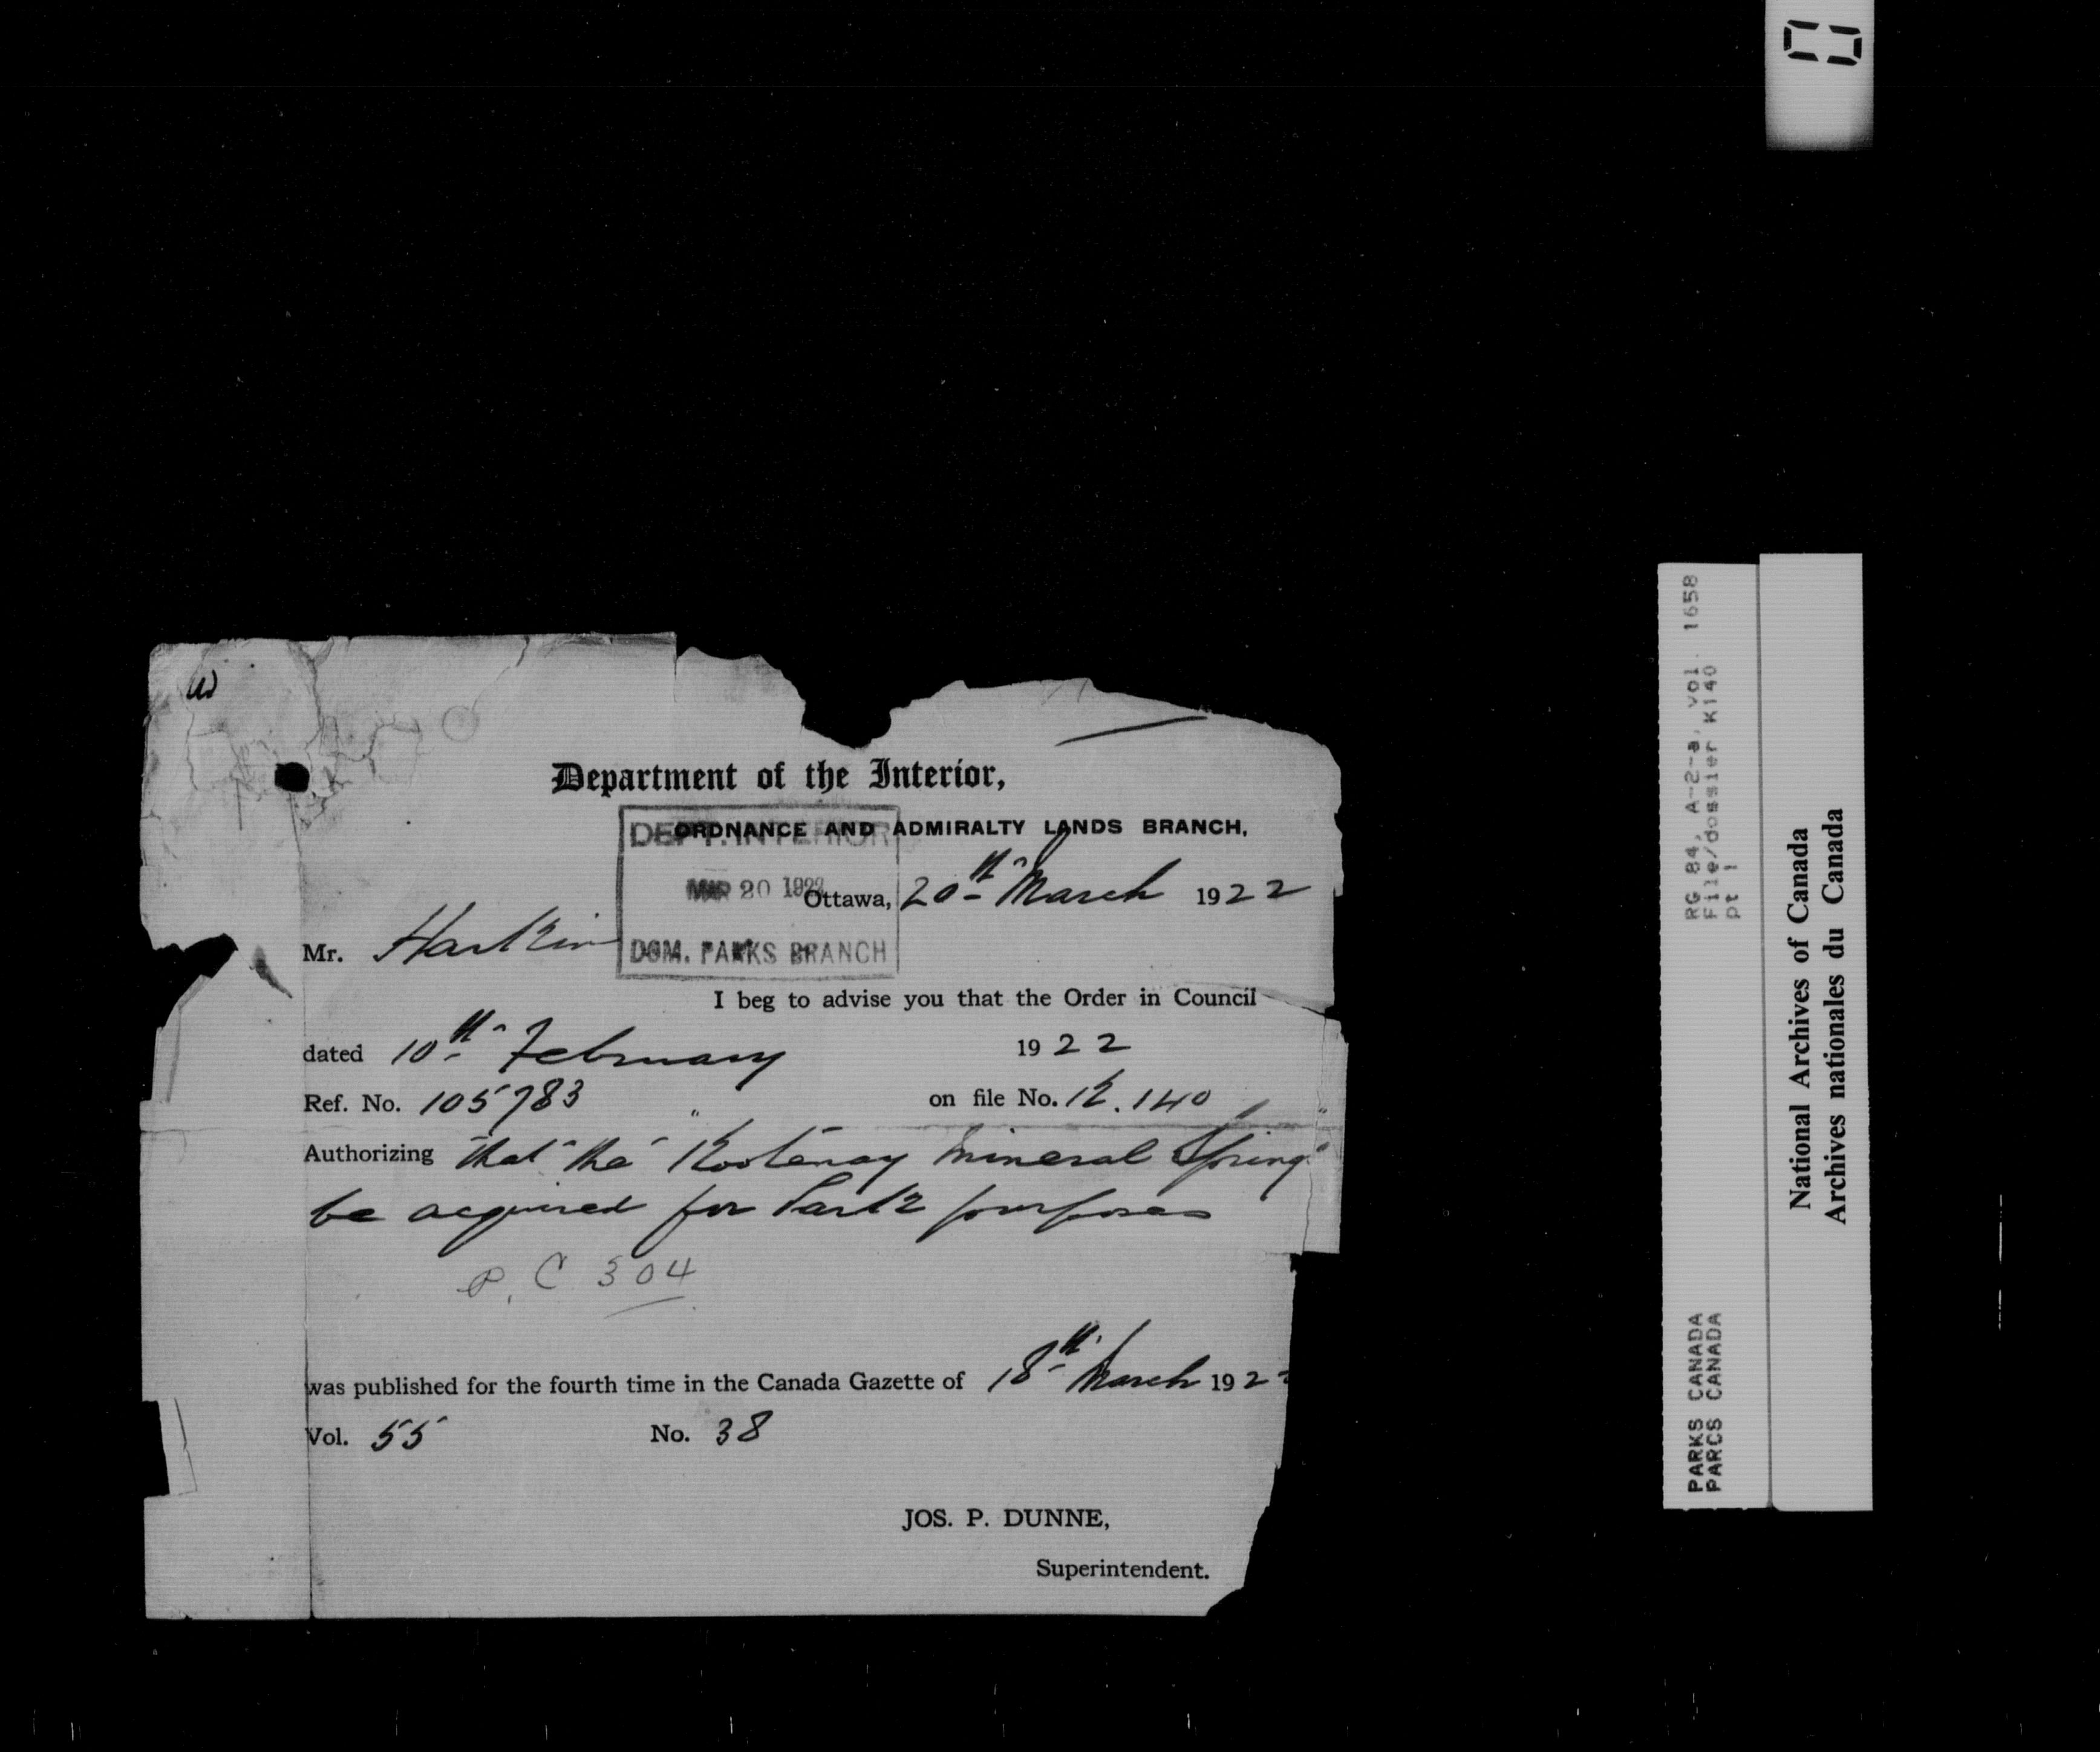 Department of the Interior,
ORDNANCE AND ADMIRALTY LANDS BRANCH,
DEPT. INTERIOR
MAR 20 1922
DOM. PARKS BRANCH
Ottawa, 20th March 1922
Mr. Harkin
I beg to advise you that the Order in Council
dated 10th February 1922
Ref. No. 105783 on file No. K.140
Authorizing that the "Kootenay Mineral Springs"
be acquired for Park purposes
P.C 304
was published for the fourth time in the Canada Gazette of 18th March 192
Vol. 55 No. 38
JOS. P. DUNNE,
Superintendent.
RG 84, A-2-a, vol. 1658
File/dossier K140
pt 1
PARKS CANADA
PARCS CANADA
National Archives of Canada
Archives nationales du Canada